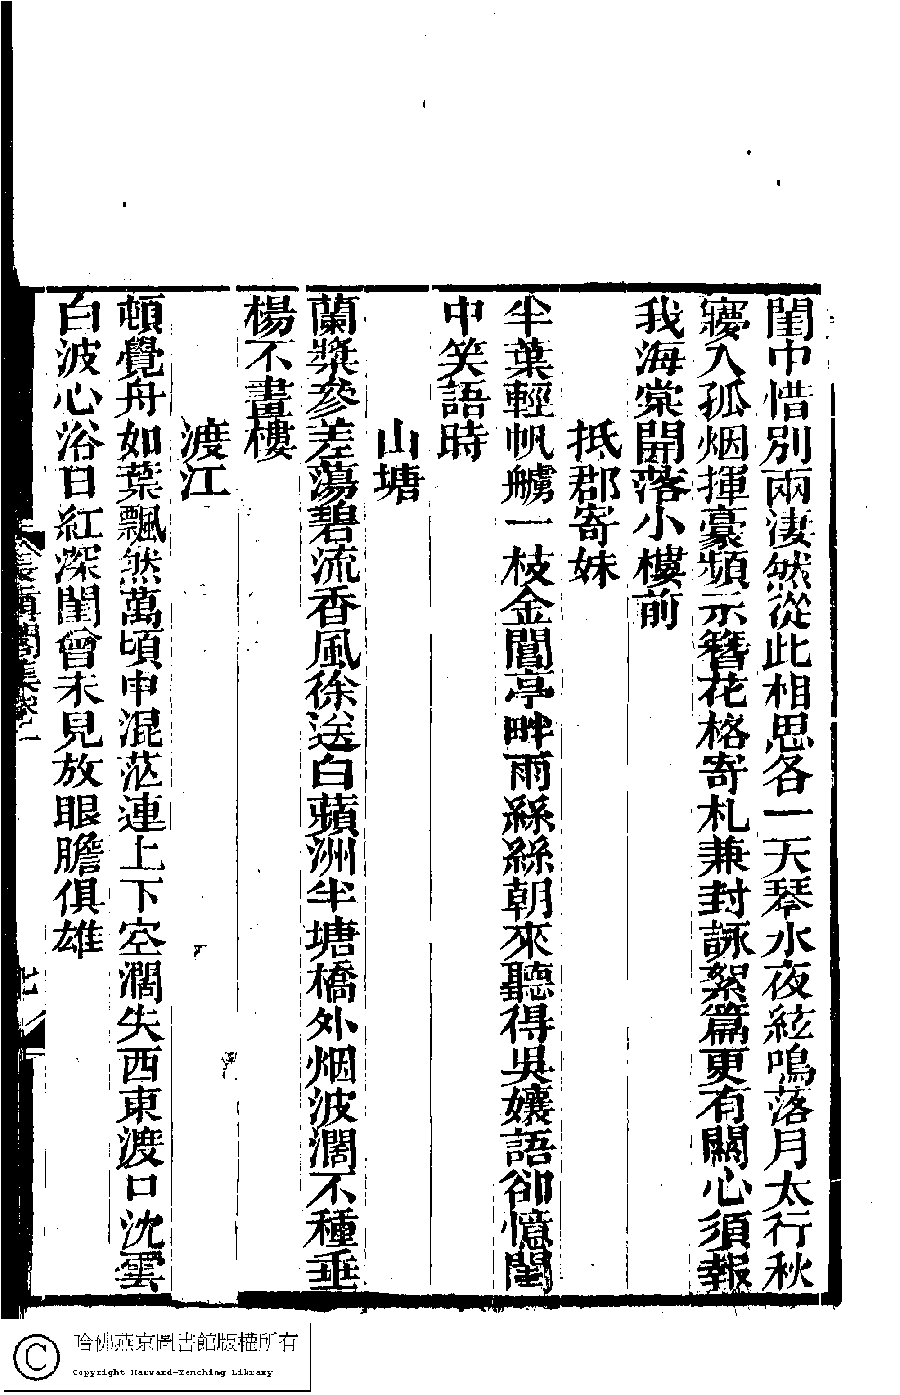 閨中惜別兩淒然從此相思各一天琴水夜絃鳴落月太行秋
寢入孤烟揮豪頻示簪花格寄札兼封詠絮篇更有關心須報
我海棠開落小樓前
抵郡寄妹
半葉輕帆艣一枝金閶亭畔雨絲絲朝來聽得吳孃語卻憶閨
中笑語時
山塘
蘭槳參差蕩碧流香風徐送白蘋洲半塘橋外烟波濶不種垂
楊不畫樓
渡江
頓覺舟如葉飄然萬頃中混茫連上下空濶失西東渡口沈雲
白波心浴日紅深閨曾未見放眼膽俱雄
閣集卷二
七
哈佛燕京圖書館版權所有
Copyright Harvard-Yenching Library